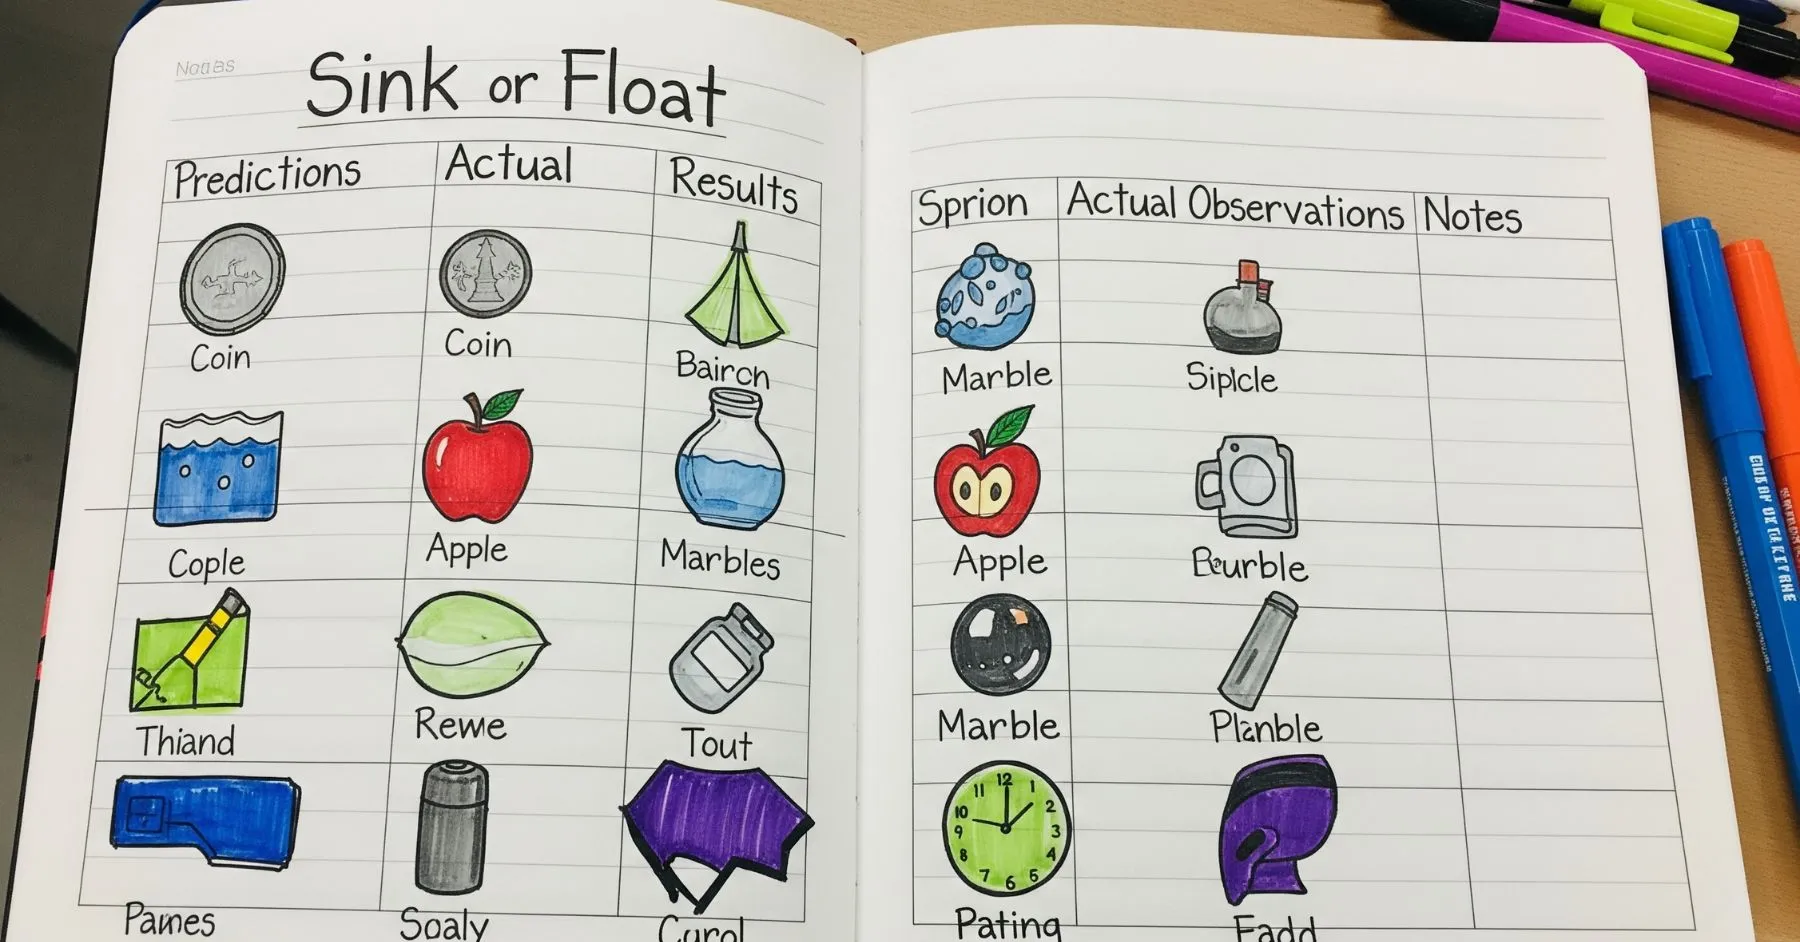 Sink or Float
Predictions Actual Results
Coin Coin Bairch
Cople Apple Marbles
Thiand Rewe Tout
Pames Soaly Curol
Sprion Actual Observations Notes
Marble Siplcle
Apple
Marble Planble
12
11 1
10 2
9 3
8 4
7 6 5
Pating Fadd